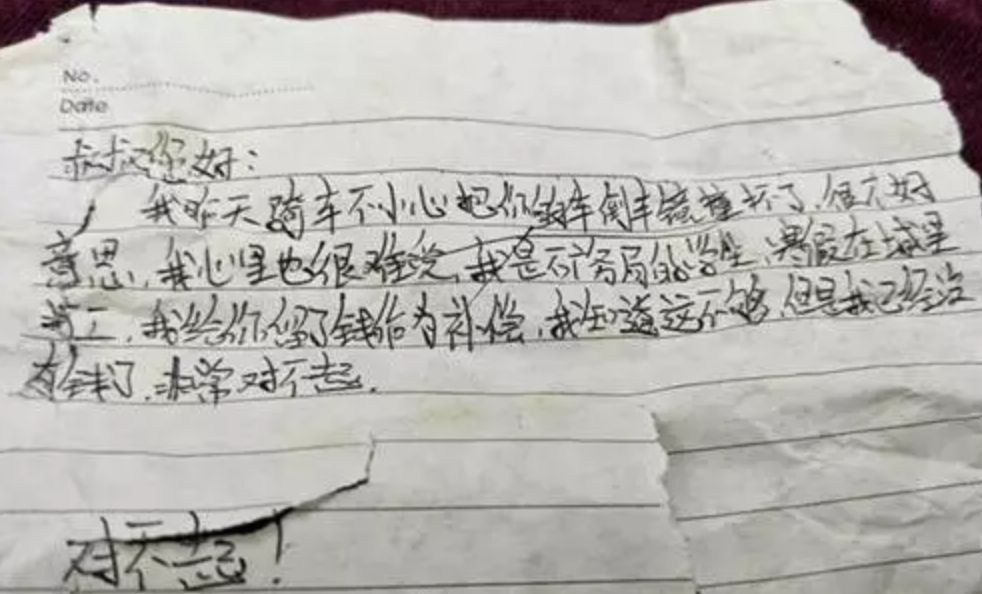 No.
Date
叔叔您好：
我昨天骑车不小心把你的车倒车镜撞坏了，很不好
意思，我心里也很难受，我是不务局的学生，寒假在城里
打工，我给你留了钱作为补偿，我知道这不够，但是我已经没
有钱了，非常对不起.
对不起！